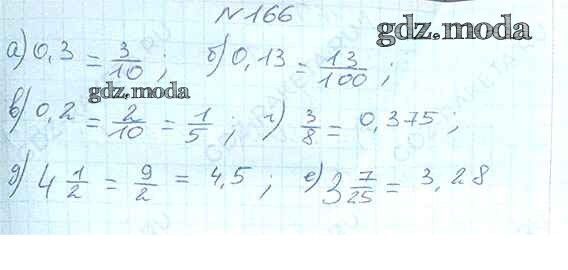 №166
gdz.moda
а) 0,3 = 3/10 ; б) 0,13 = 13/100 ;
gdz.moda
в) 0,2 = 2/10 = 1/5 ; г) 3/8 = 0,375 ;
д) 4 1/2 = 9/2 = 4,5 ; е) 3 7/25 = 3,28